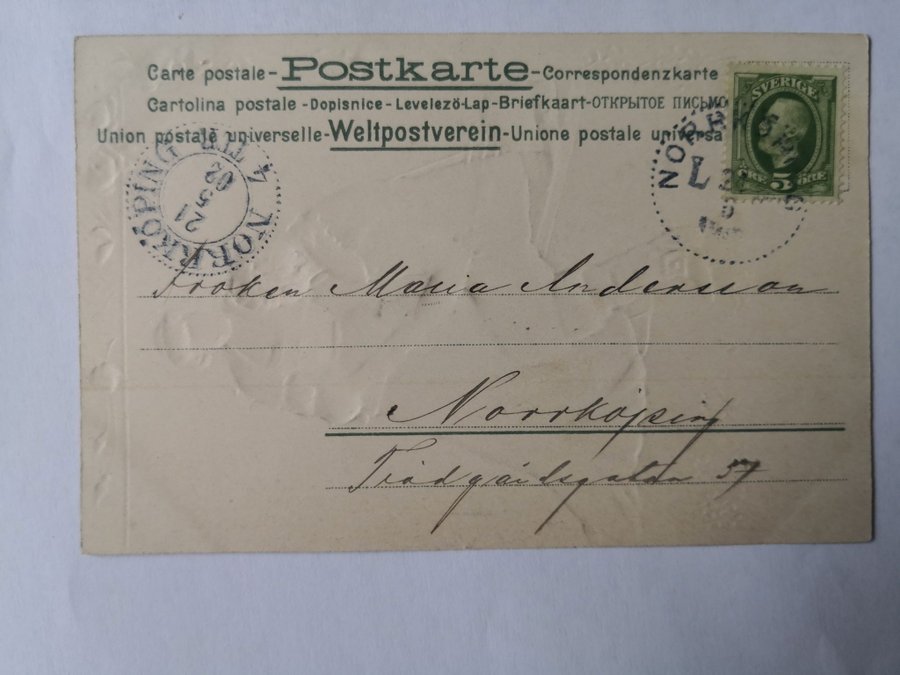 Carte postale - Postkarte - Correspondenzkarte
Cartolina postale - Dopisnice - Levelező-Lap - Briefkaart - ОТКРЫТОЕ ПИСЬМО
Union postale universelle - Weltpostverein - Unione postale universa
SVERIGE
5
ÖRE
NORRKÖPING
L
NORRKÖPING
21
5
02
Fröken Maria Andersson
Norrköping
Trädgårdsgatan 57